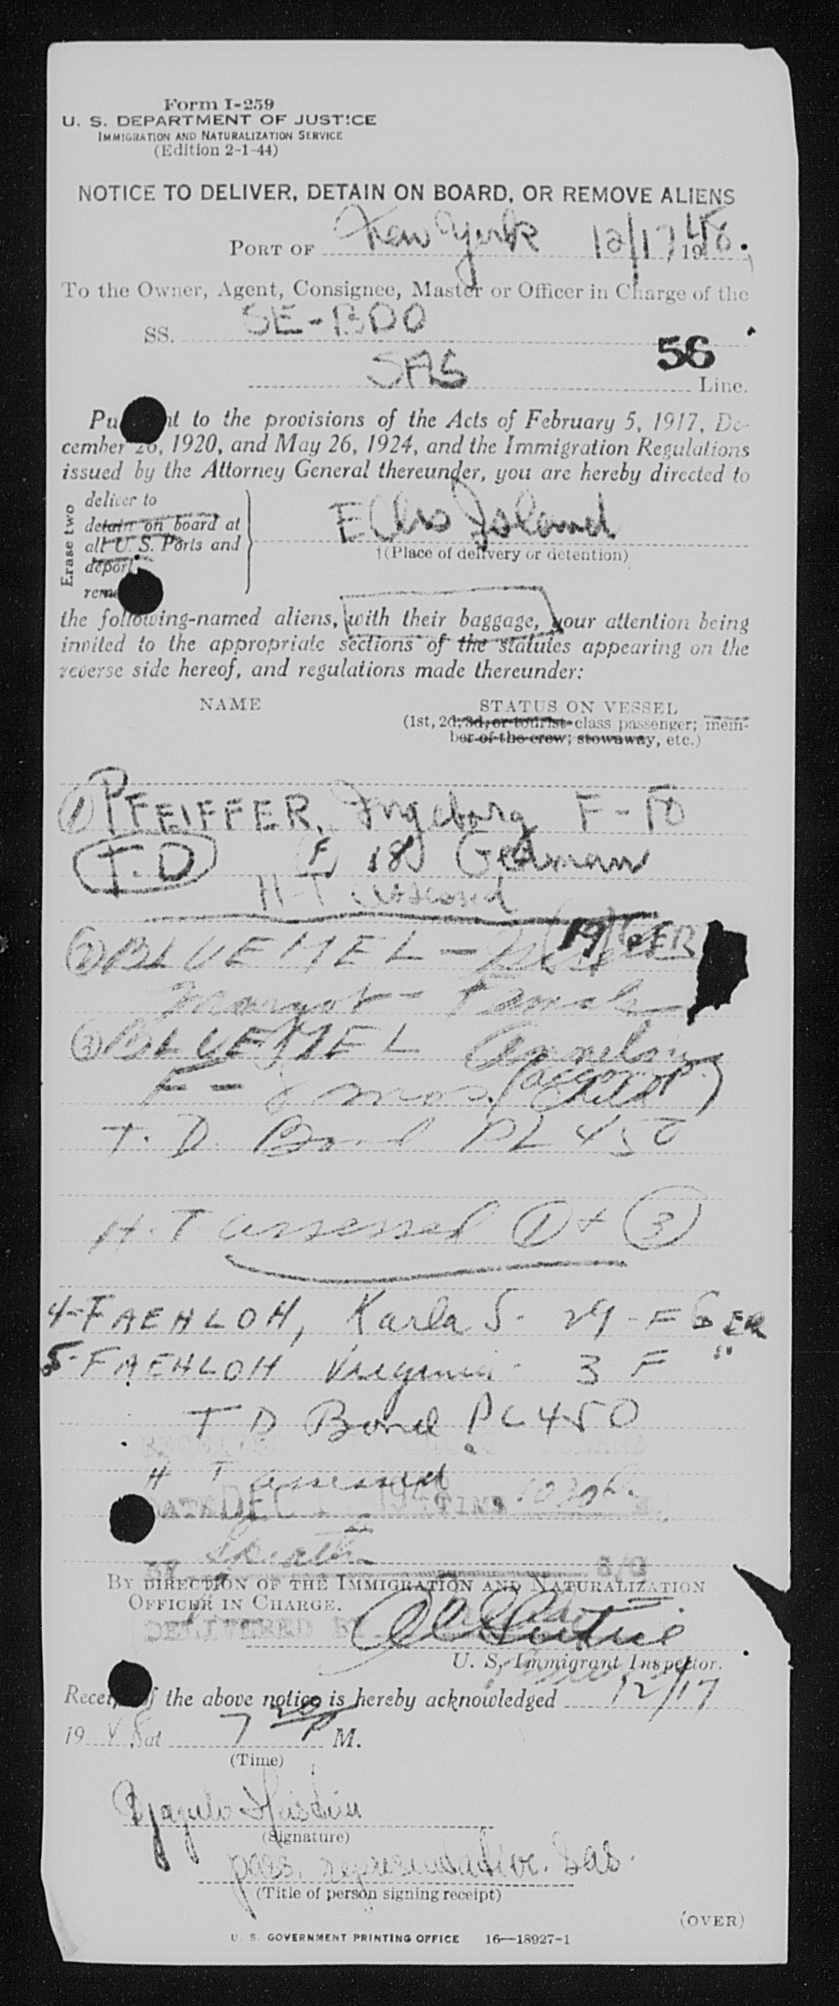 Form I-259
U. S. DEPARTMENT OF JUSTICE
IMMIGRATION AND NATURALIZATION SERVICE
(Edition 2-1-44)
NOTICE TO DELIVER, DETAIN ON BOARD, OR REMOVE ALIENS
PORT OF New York 12/17 1948.
To the Owner, Agent, Consignee, Master or Officer in Charge of the
SS. SE-BDO
56
SAS Line.
Pu nt to the provisions of the Acts of February 5, 1917, De-
cember 26, 1920, and May 26, 1924, and the Immigration Regulations
issued by the Attorney General thereunder, you are hereby directed to
Erase two
deliver to
detain on board at
all U. S. Ports and
deport
rem
Ellis Island
†(Place of delivery or detention)
the following-named aliens, with their baggage, your attention being
invited to the appropriate sections of the statutes appearing on the
reverse side hereof, and regulations made thereunder:
NAME STATUS ON VESSEL
(1st, 2d, 3d, or tourist class passenger; mem-
ber of the crew; stowaway, etc.)
① PFEIFFER, Ingeborg F-
T.D F 18 German
H-T assessed
② BLUEMEL - 19 GER
Margot - Female
③ BLUEMEL
F - mos. (accomp. Child)
T. D. Bond PL 450
H.T assessed ① + ③
4-FAEHLOH, Karla S. 29 - F GER
5-FAEHLOH Virginia - 3 F "
T D Bond PL 450
H T assessed
DATE DEC 1948 TIME
BY S/O
BY DIRECTION OF THE IMMIGRATION AND NATURALIZATION
OFFICER IN CHARGE.
DELIVERED BY
U. S. Immigrant Inspector.
Recei of the above notice is hereby acknowledged 12/17
19 48 at 7 M.
(Time)
(Signature)
pass. representative. Sas.
(Title of person signing receipt)
(OVER)
U. S. GOVERNMENT PRINTING OFFICE 16—18927-1